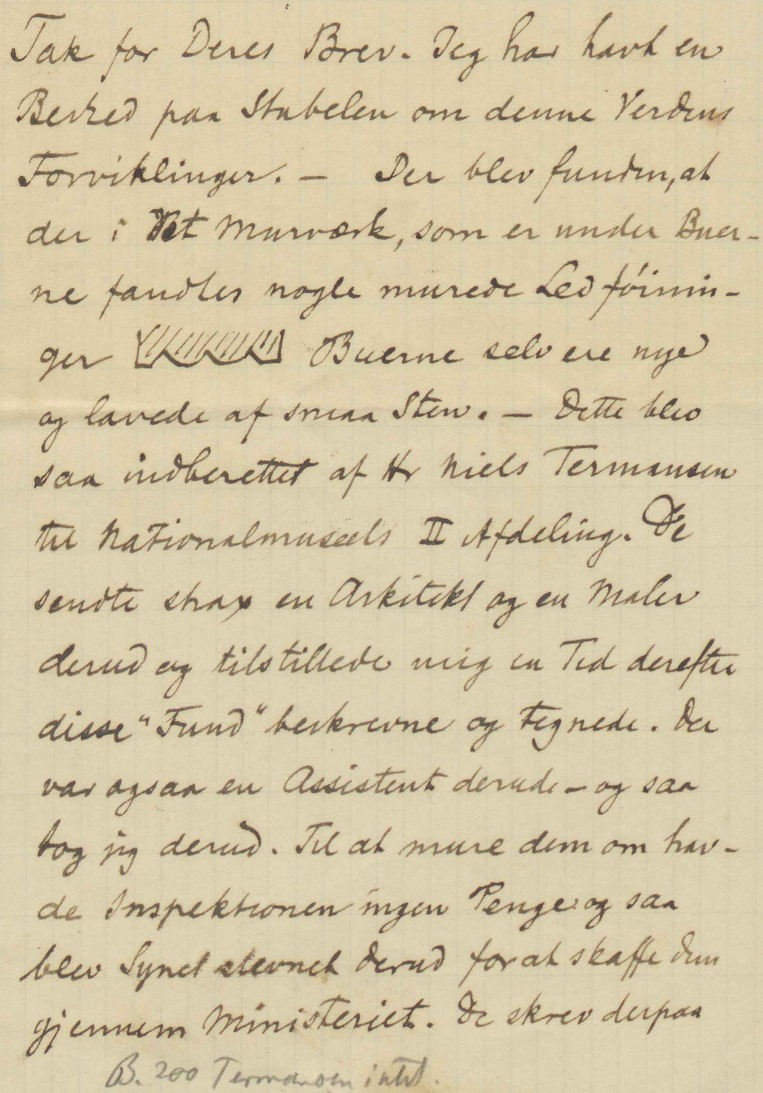 Tak for Deres Brev. Jeg har havt en
Besked paa Stabelen om denne Verdens
Forviklinger. – Der blev funden, at
der i Det Murværk, som er under Buer-
ne fandtes nogle murede Ledføinin-
ger Buerne selv ere nye
og lavede af smaa Sten. – Dette blev
saa indberettet af Hr Niels Termansen
til Nationalmuseets II Afdeling. De
sendte strax en Arkitekt og en Maler
derud og tilstillede mig en Tid derefter
disse "Fund" beskrevne og tegnede. Der
var ogsaa en Assistent derude – og saa
tog jeg derud. Til at mure dem om hav-
de Inspektionen ingen Penge og saa
blev Synet stevnet derud for at skaffe dem
gjennem Ministeriet. De skrev derpaa
B. 200 Termansen